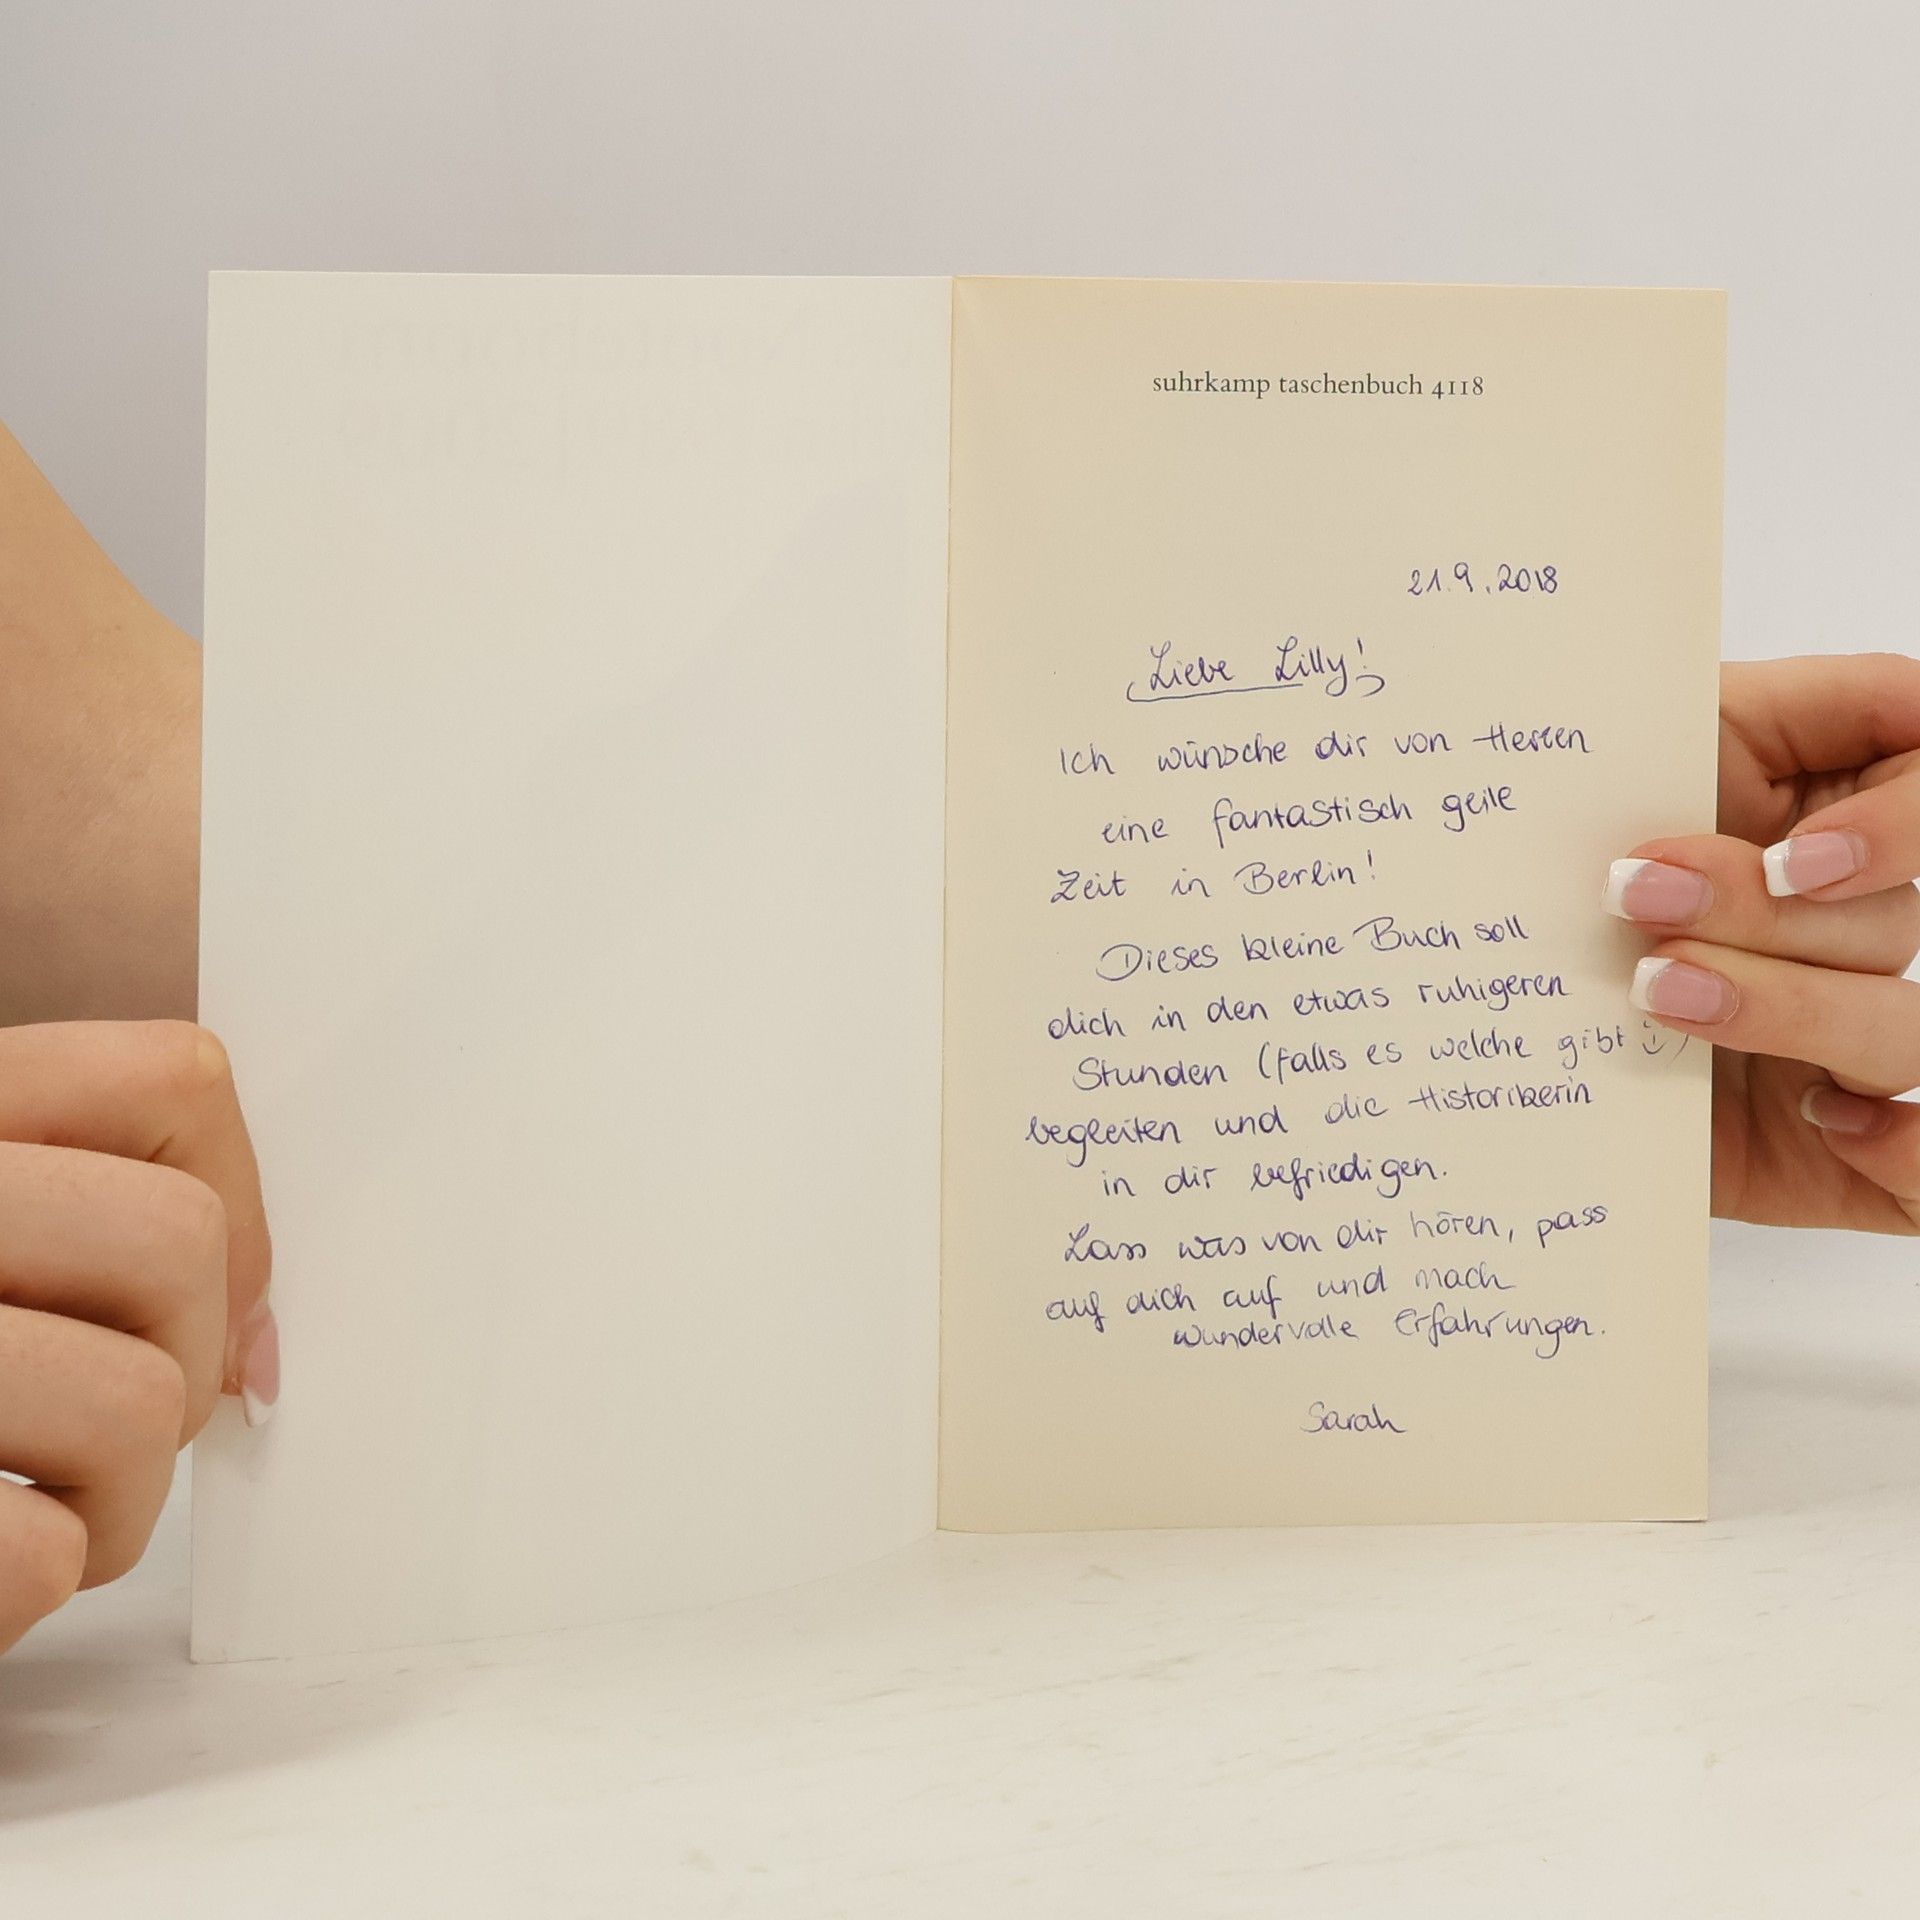 suhrkamp taschenbuch 4118
21.9.2018
Liebe Lilly!
Ich wünsche dir von Herzen
eine fantastisch geile
Zeit in Berlin!
Dieses kleine Buch soll
dich in den etwas ruhigeren
Stunden (falls es welche gibt :))
begleiten und die Historikerin
in dir befriedigen.
Lass was von dir hören, pass
auf dich auf und mach
wundervolle Erfahrungen.
Sarah